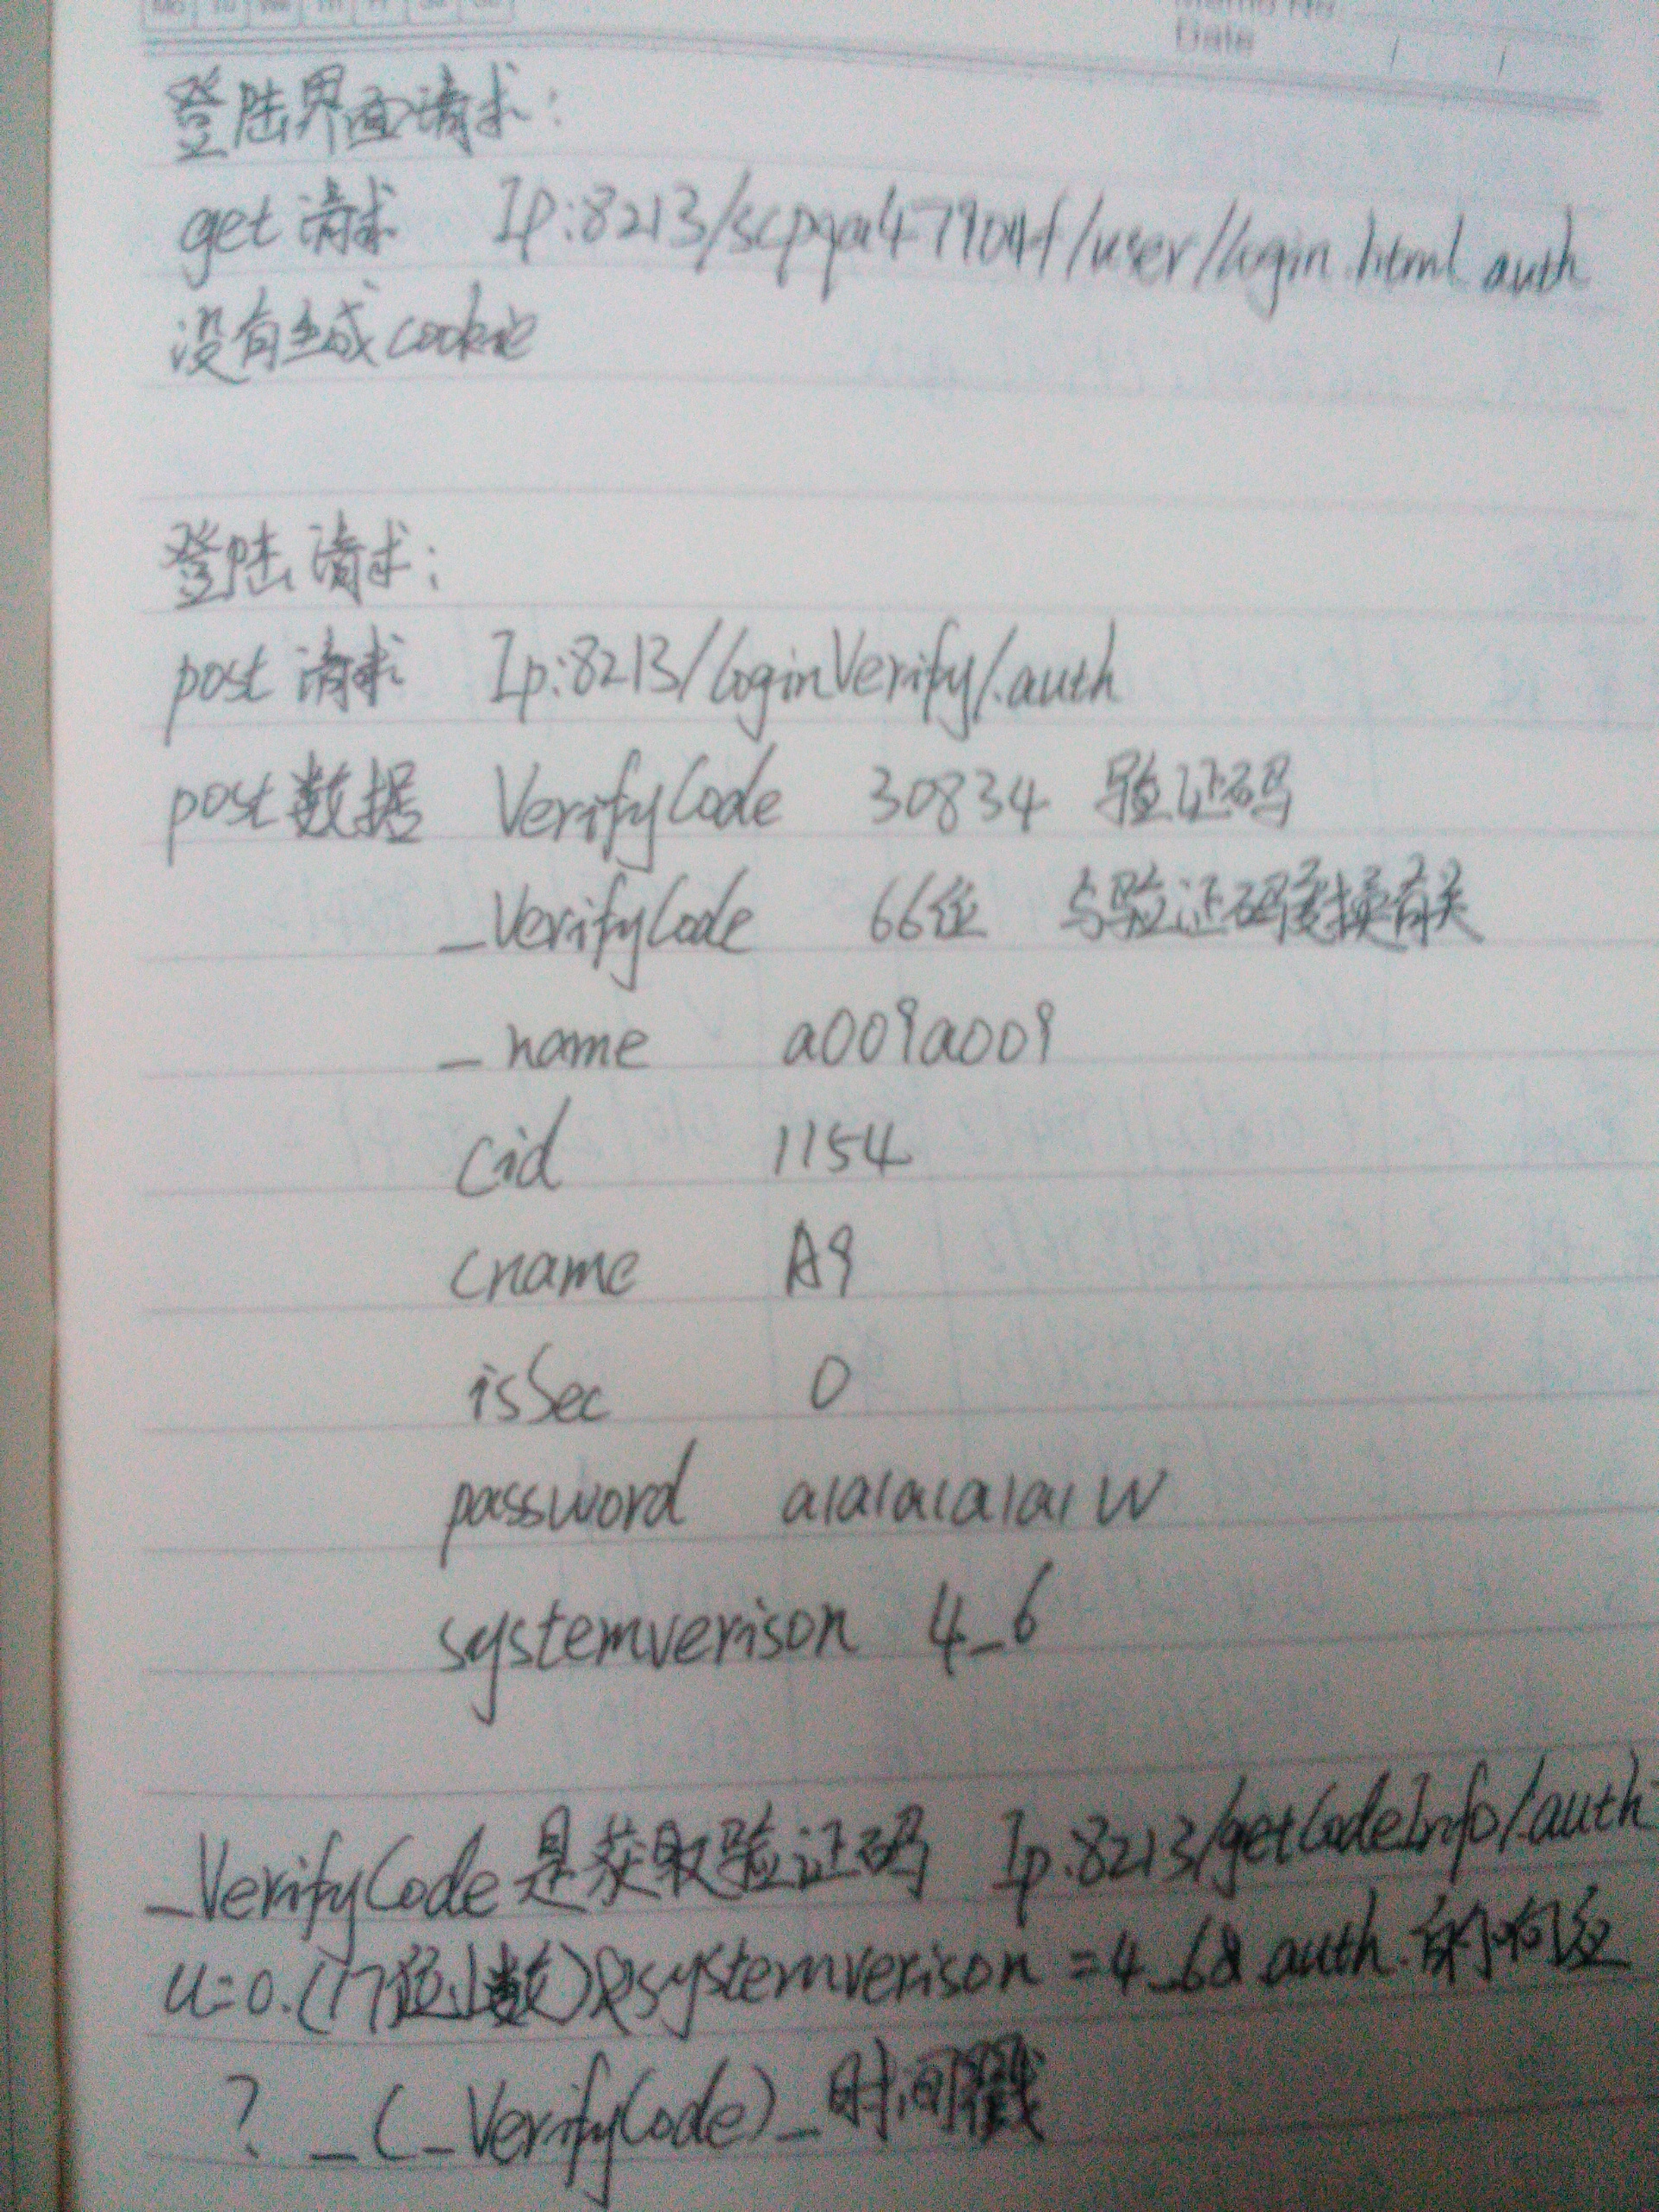 Mo Tu We Th Fr Sa Su
Memo No.
Date / /
登陆界面请求:
get 请求 Ip:8213/ /user/login.html auth
没有生成 cookie
登陆请求:
post 请求 Ip:8213/loginVerify/.auth
post 数据 VerifyCode 30834 验证码
_VerifyCode 66位 与验证码变换有关
_name a009a009
cid 1154
cname A9
isSec 0
password a1a1a1a1a1W
systemverison 4_6
_VerifyCode 是获取验证码 Ip:8213/getCodeInfo/.auth
u=0.(17位小数)&systemverison=4_6& auth. 的响应
? _(_VerifyCode)_时间戳